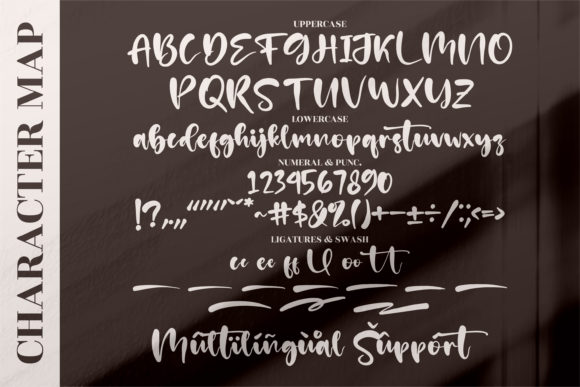 CHARACTER MAP
UPPERCASE
ABCDEFGHIJKLMNO
PQRSTUVWXYZ
LOWERCASE
abcdefghijklmnopqrstuvwxyz
NUMERAL & PUNC.
1234567890
!?.,,"""˘*~#$&%()+−±÷/:;<=>
LIGATURES & SWASH
ee ee ff ll oo tt
Mûltïlíñgùål Šûppört